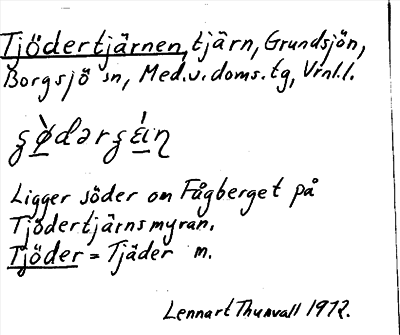 Tjödertjärnen, tjärn, Grundsjön,
Borgsjö sn, Med.v.doms.tg, Vrnl.l.
Ligger söder om Fågberget på
Tjödertjärnsmyran.
Tjöder = Tjäder m.
Lennart Thunvall 1972.